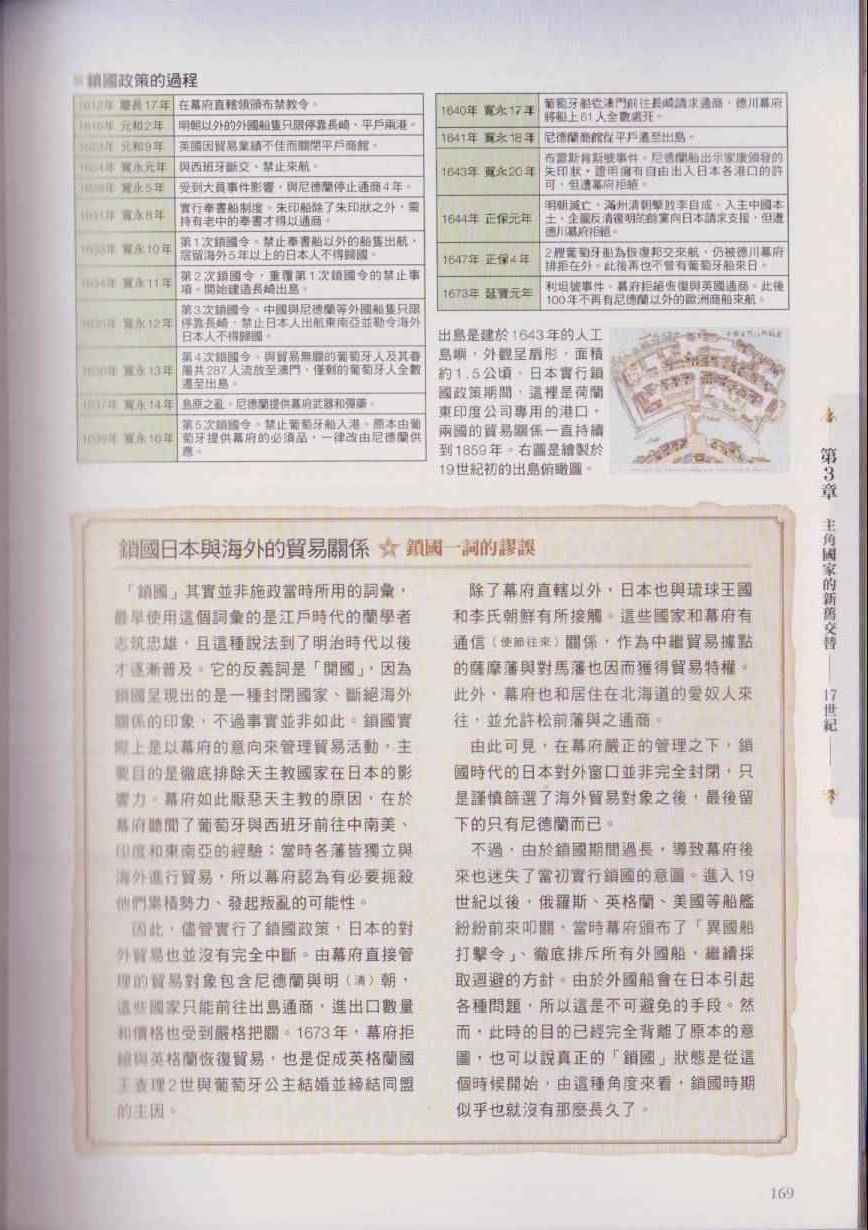 鎖國政策的過程
1612年 慶長17年 在幕府直轄領頒布禁教令。
1616年 元和2年 明朝以外的外國船隻只限停靠長崎、平戶兩港。
1623年 元和9年 英國因貿易業績不佳而關閉平戶商館。
1624年 寬永元年 與西班牙斷交、禁止來航。
1628年 寬永5年 受到大員事件影響,與尼德蘭停止通商4年。
1631年 寬永8年 實行奉書船制度。朱印船除了朱印狀之外,需
持有老中的奉書才得以通商。
1633年 寬永10年 第1次鎖國令。禁止奉書船以外的船隻出航,
居留海外5年以上的日本人不得歸國。
1634年 寬永11年 第2次鎖國令,重覆第1次鎖國令的禁止事
項。開始建造長崎出島。
1635年 寬永12年 第3次鎖國令。中國與尼德蘭等外國船隻只限
停靠長崎,禁止日本人出航東南亞並勒令海外
日本人不得歸國。
1636年 寬永13年 第4次鎖國令。與貿易無關的葡萄牙人及其眷
屬共287人流放至澳門,僅剩的葡萄牙人全數
遷至出島。
1637年 寬永14年 島原之亂。尼德蘭提供幕府武器和彈藥。
1639年 寬永16年 第5次鎖國令。禁止葡萄牙船入港。原本由葡
萄牙提供幕府的必須品,一律改由尼德蘭供
應。
1640年 寬永17年 葡萄牙船從澳門前往長崎請求通商,德川幕府
將船上61人全數處死。
1641年 寬永18年 尼德蘭商館從平戶遷至出島。
1643年 寬永20年 布雷斯肯斯號事件。尼德蘭船出示家康頒發的
朱印狀,證明擁有自由出入日本各港口的許
可,但遭幕府拒絕。
1644年 正保元年 明朝滅亡。滿州清朝擊敗李自成、入主中國本
土,企圖反清復明的餘黨向日本請求支援,但遭
德川幕府拒絕。
1647年 正保4年 2艘葡萄牙船為恢復邦交來航,仍被德川幕府
排拒在外。此後再也不曾有葡萄牙船來日。
1673年 延寶元年 利坦號事件。幕府拒絕恢復與英國通商。此後
100年不再有尼德蘭以外的歐洲商船來航。
出島是建於1643年的人工
島嶼,外觀呈扇形,面積
約1.5公頃。日本實行鎖
國政策期間,這裡是荷蘭
東印度公司專用的港口,
兩國的貿易關係一直持續
到1859年。右圖是繪製於
19世紀初的出島俯瞰圖。
鎖國日本與海外的貿易關係 ☆ 鎖國一詞的謬誤
「鎖國」其實並非施政當時所用的詞彙,
最早使用這個詞彙的是江戶時代的蘭學者
志筑忠雄,且這種說法到了明治時代以後
才逐漸普及。它的反義詞是「開國」,因為
鎖國呈現出的是一種封閉國家、斷絕海外
關係的印象,不過事實並非如此。鎖國實
際上是以幕府的意向來管理貿易活動,主
要目的是徹底排除天主教國家在日本的影
響力。幕府如此厭惡天主教的原因,在於
幕府聽聞了葡萄牙與西班牙前往中南美、
印度和東南亞的經驗;當時各藩皆獨立與
海外進行貿易,所以幕府認為有必要扼殺
他們累積勢力、發起叛亂的可能性。
因此,儘管實行了鎖國政策,日本的對
外貿易也並沒有完全中斷。由幕府直接管
理的貿易對象包含尼德蘭與明(清)朝,
這些國家只能前往出島通商,進出口數量
和價格也受到嚴格把關。1673年,幕府拒
絕與英格蘭恢復貿易,也是促成英格蘭國
王查理2世與葡萄牙公主結婚並締結同盟
的主因。
除了幕府直轄以外,日本也與琉球王國
和李氏朝鮮有所接觸。這些國家和幕府有
通信(使節往來)關係,作為中繼貿易據點
的薩摩藩與對馬藩也因而獲得貿易特權。
此外,幕府也和居住在北海道的愛奴人來
往,並允許松前藩與之通商。
由此可見,在幕府嚴正的管理之下,鎖
國時代的日本對外窗口並非完全封閉,只
是謹慎篩選了海外貿易對象之後,最後留
下的只有尼德蘭而已。
不過,由於鎖國期間過長,導致幕府後
來也迷失了當初實行鎖國的意圖。進入19
世紀以後,俄羅斯、英格蘭、美國等船艦
紛紛前來叩關,當時幕府頒布了「異國船
打擊令」、徹底排斥所有外國船,繼續採
取迴避的方針。由於外國船會在日本引起
各種問題,所以這是不可避免的手段。然
而,此時的目的已經完全背離了原本的意
圖,也可以說真正的「鎖國」狀態是從這
個時候開始,由這種角度來看,鎖國時期
似乎也就沒有那麼長久了。
第3章 主角國家的新舊交替——17世紀——
169